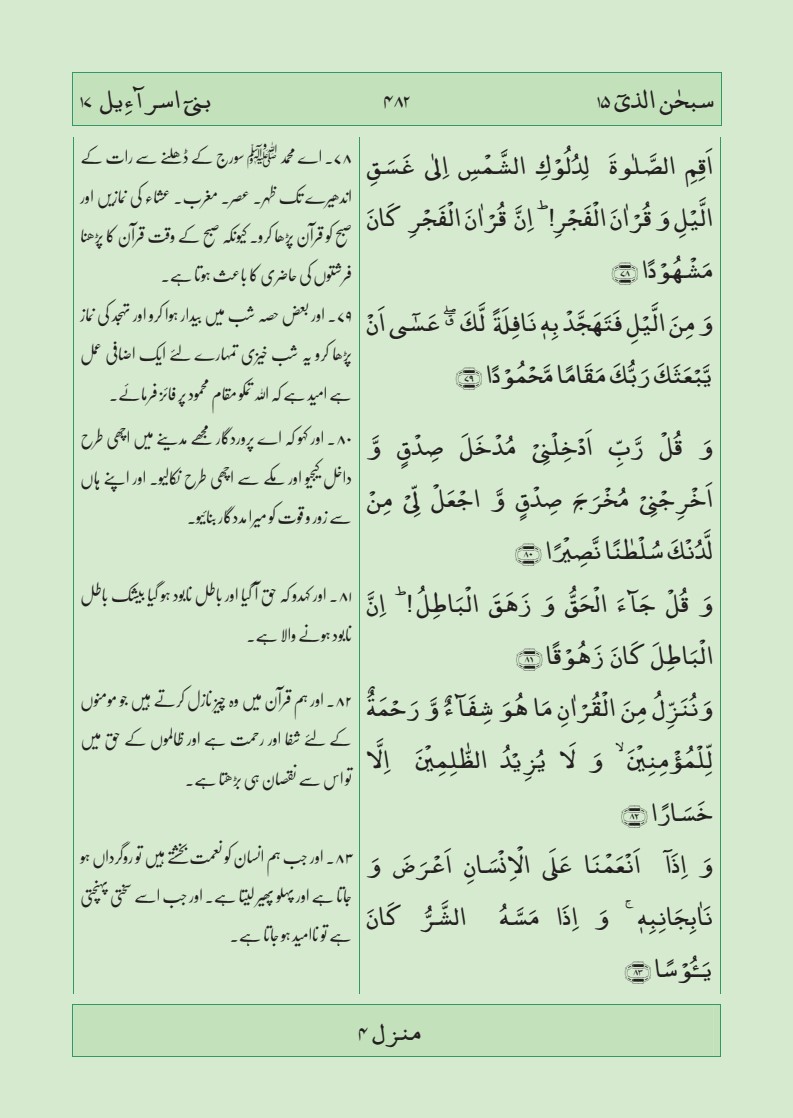 سبحٰن الذیٓ ۱۵
۴۸۲
بنیٓ اسرآءِیل ۱۷
اَقِمِ الصَّلٰوةَ لِدُلُوْكِ الشَّمْسِ اِلٰى غَسَقِ
الَّيْلِ وَ قُرْاٰنَ الْفَجْرِ! ؕ اِنَّ قُرْاٰنَ الْفَجْرِ كَانَ
مَشْهُوْدًا ۷۸
وَ مِنَ الَّيْلِ فَتَهَجَّدْ بِهٖ نَافِلَةً لَّكَ ۖۗ عَسٰٓى اَنْ
يَّبْعَثَكَ رَبُّكَ مَقَامًا مَّحْمُوْدًا ۷۹
وَ قُلْ رَّبِّ اَدْخِلْنِیْ مُدْخَلَ صِدْقٍ وَّ
اَخْرِجْنِیْ مُخْرَجَ صِدْقٍ وَّ اجْعَلْ لِّیْ مِنْ
لَّدُنْكَ سُلْطٰنًا نَّصِيْرًا ۸۰
وَ قُلْ جَآءَ الْحَقُّ وَ زَهَقَ الْبَاطِلُ! ؕ اِنَّ
الْبَاطِلَ كَانَ زَهُوْقًا ۸۱
وَ نُنَزِّلُ مِنَ الْقُرْاٰنِ مَا هُوَ شِفَآءٌ وَّ رَحْمَةٌ
لِّلْمُؤْمِنِيْنَ ۙ وَ لَا يَزِيْدُ الظّٰلِمِيْنَ اِلَّا
خَسَارًا ۸۲
وَ اِذَآ اَنْعَمْنَا عَلَى الْاِنْسَانِ اَعْرَضَ وَ
نَاٰبِجَانِبِهٖ ۚ وَ اِذَا مَسَّهُ الشَّرُّ كَانَ
يَـُٔوْسًا ۸۳
۷۸۔ اے محمد ﷺ سورج کے ڈھلنے سے رات کے
اندھیرے تک ظہر۔ عصر۔ مغرب۔ عشاء کی نمازیں اور
صبح کو قرآن پڑھا کرو۔ کیونکہ صبح کے وقت قرآن کا پڑھنا
فرشتوں کی حاضری کا باعث ہوتا ہے۔
۷۹۔ اور بعض حصہ شب میں بیدار ہوا کرو اور تہجد کی نماز
پڑھا کرو یہ شب خیزی تمہارے لئے ایک اضافی عمل
ہے امید ہے کہ اللہ تمکو مقام محمود پر فائز فرمائے۔
۸۰۔ اور کہو کہ اے پروردگار مجھے مدینے میں اچھی طرح
داخل کیجیو اور مکے سے اچھی طرح نکالیو۔ اور اپنے ہاں
سے زور و قوت کو میرا مددگار بنائیو۔
۸۱۔ اور کہدو کہ حق آ گیا اور باطل نابود ہو گیا بیشک باطل
نابود ہونے والا ہے۔
۸۲۔ اور ہم قرآن میں وہ چیز نازل کرتے ہیں جو مومنوں
کے لئے شفا اور رحمت ہے اور ظالموں کے حق میں
تو اس سے نقصان ہی بڑھتا ہے۔
۸۳۔ اور جب ہم انسان کو نعمت بخشتے ہیں تو روگرداں ہو
جاتا ہے اور پہلو پھیر لیتا ہے۔ اور جب اسے سختی پہنچتی
ہے تو ناامید ہو جاتا ہے۔
منزل ۴